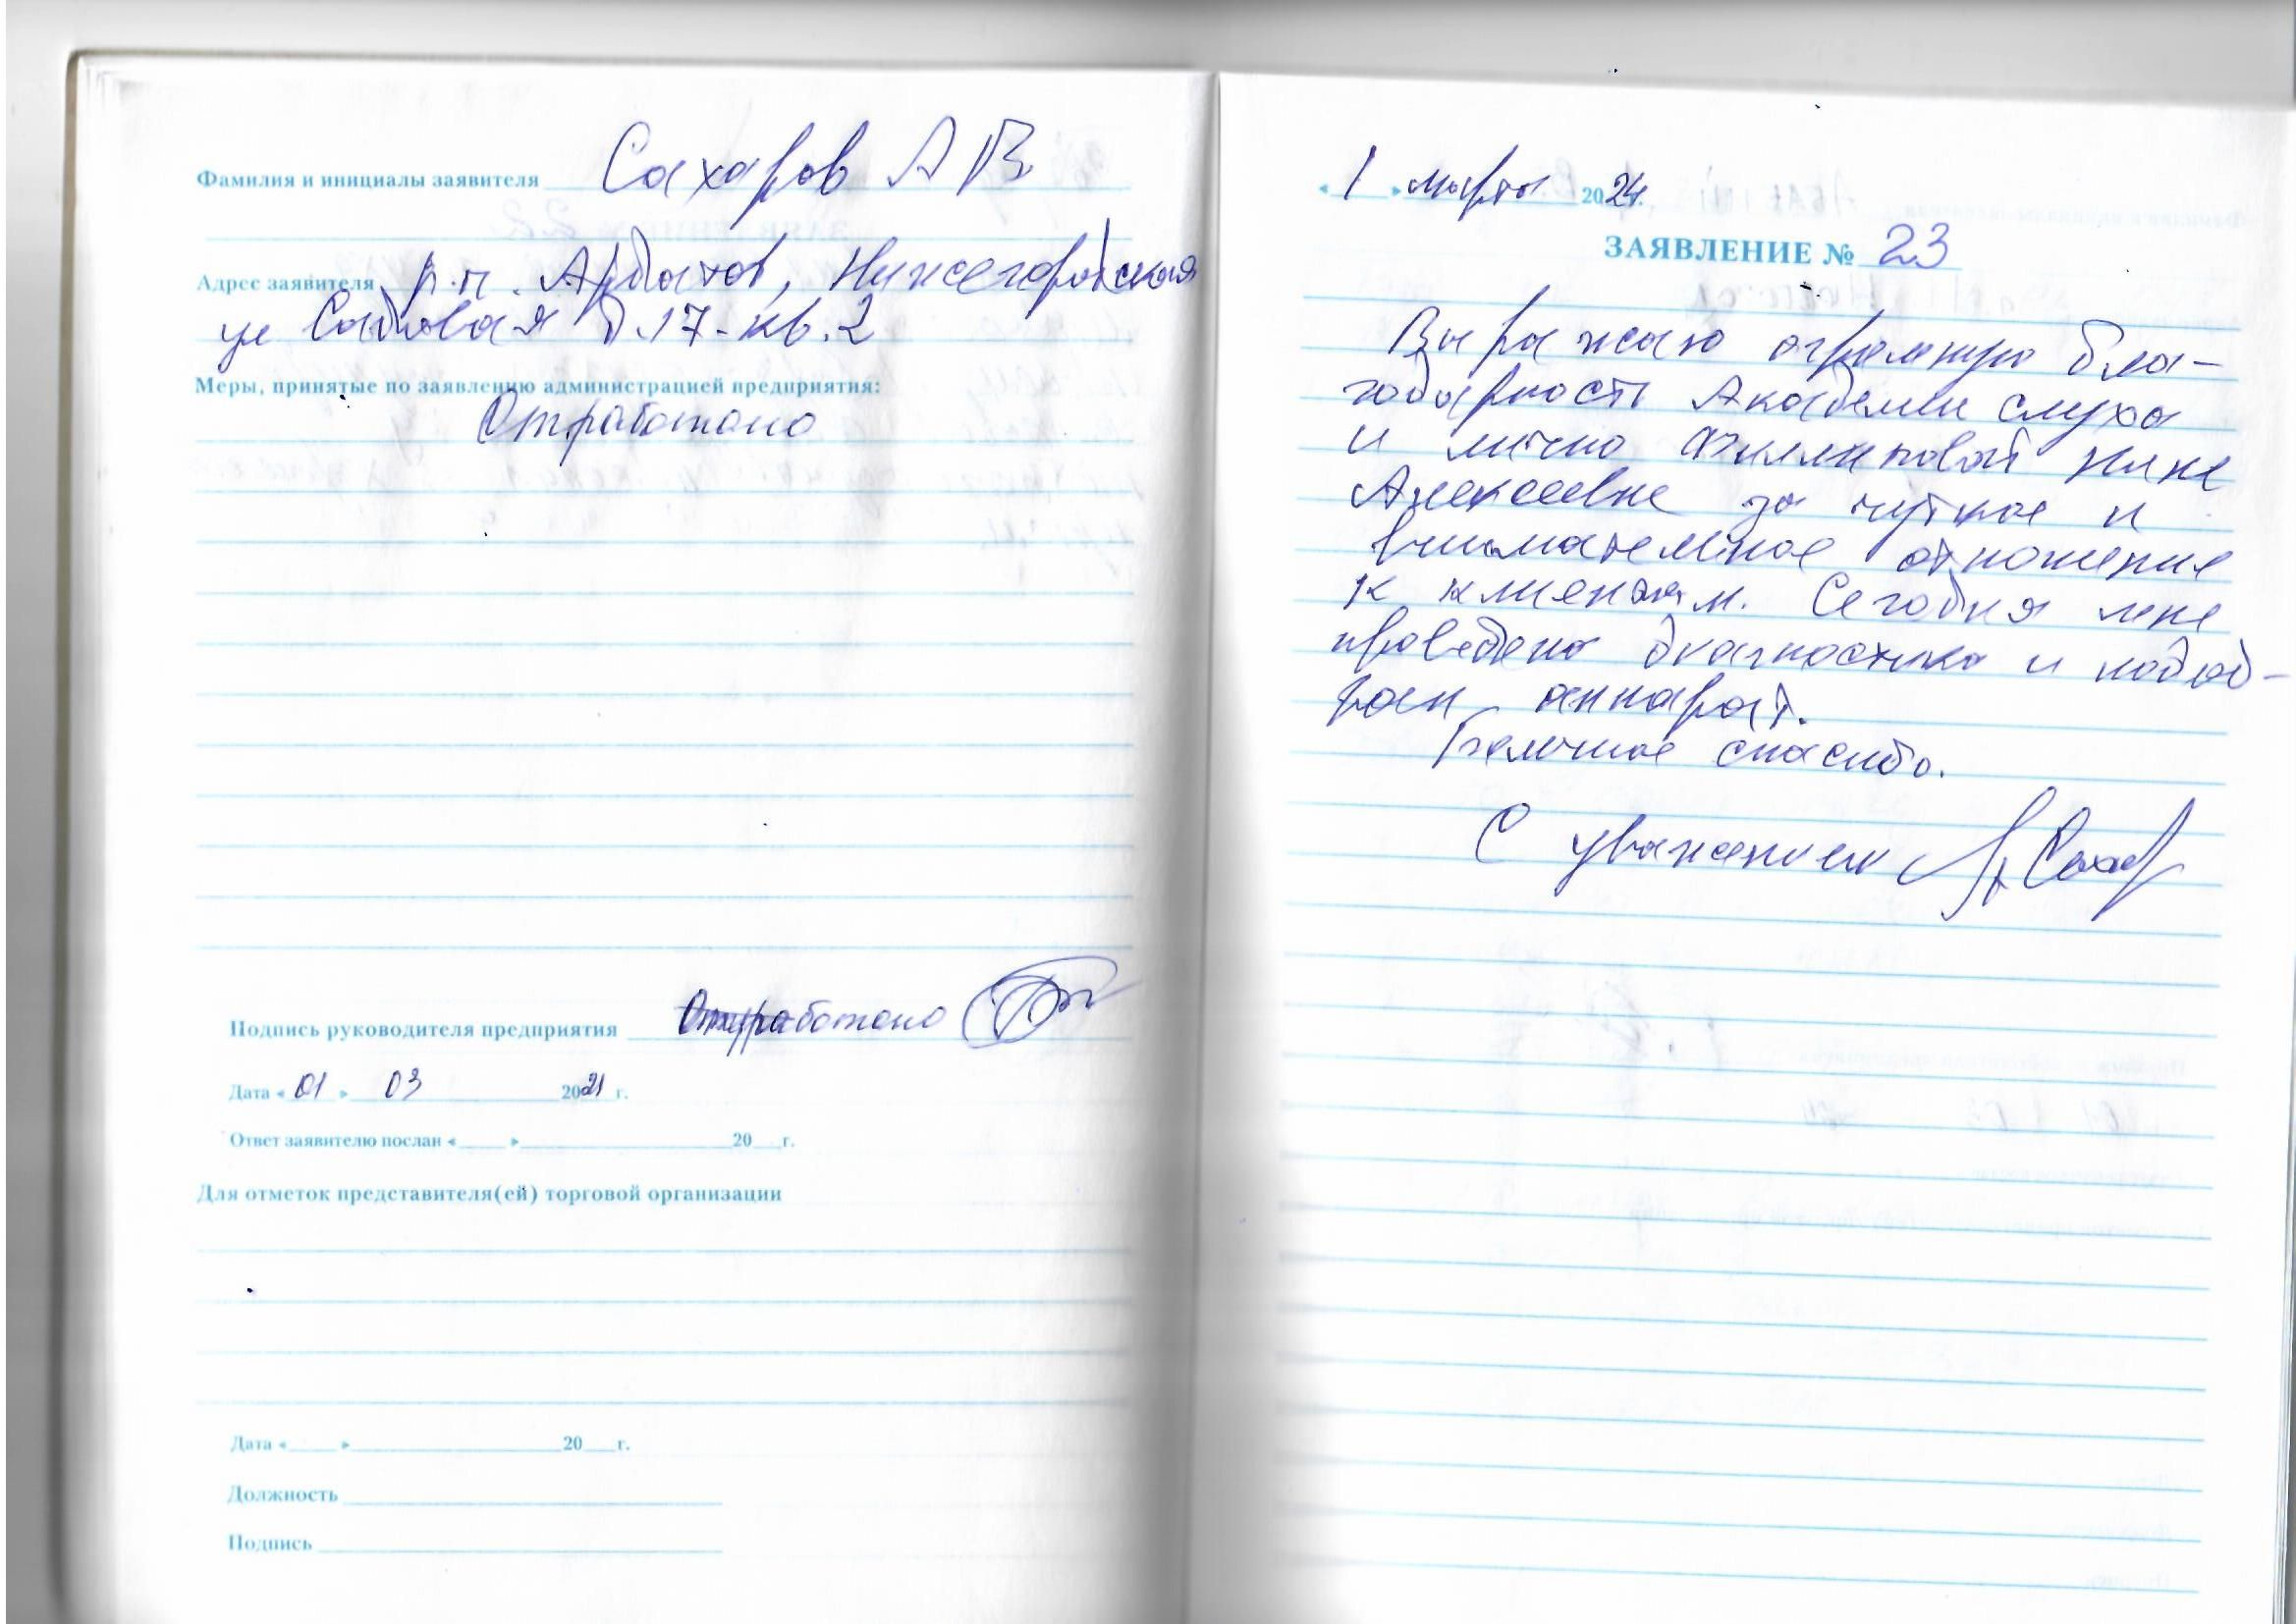 Фамилия и инициалы заявителя Сахаров А В
Адрес заявителя р.п. Ардатов, Нижегородская
ул Садовая д.17-кв.2
Меры, принятые по заявлению администрацией предприятия:
Отработано
Подпись руководителя предприятия Отработано
Дата « 01 » 03 2021 г.
Ответ заявителю послан « » 20 г.
Для отметок представителя(ей) торговой организации
Дата « » 20 г.
Должность
Подпись
« 1 » марта 2024.
ЗАЯВЛЕНИЕ № 23
Выражаю огромную бла-
годарность Академии слуха
и лично Филлиповой Нине
Алексеевне за чуткое и
внимательное отношение
к клиентам. Сегодня мне
проведена диагностика и подоб-
ран аппарат.
Большое спасибо.
С уважением Сахар